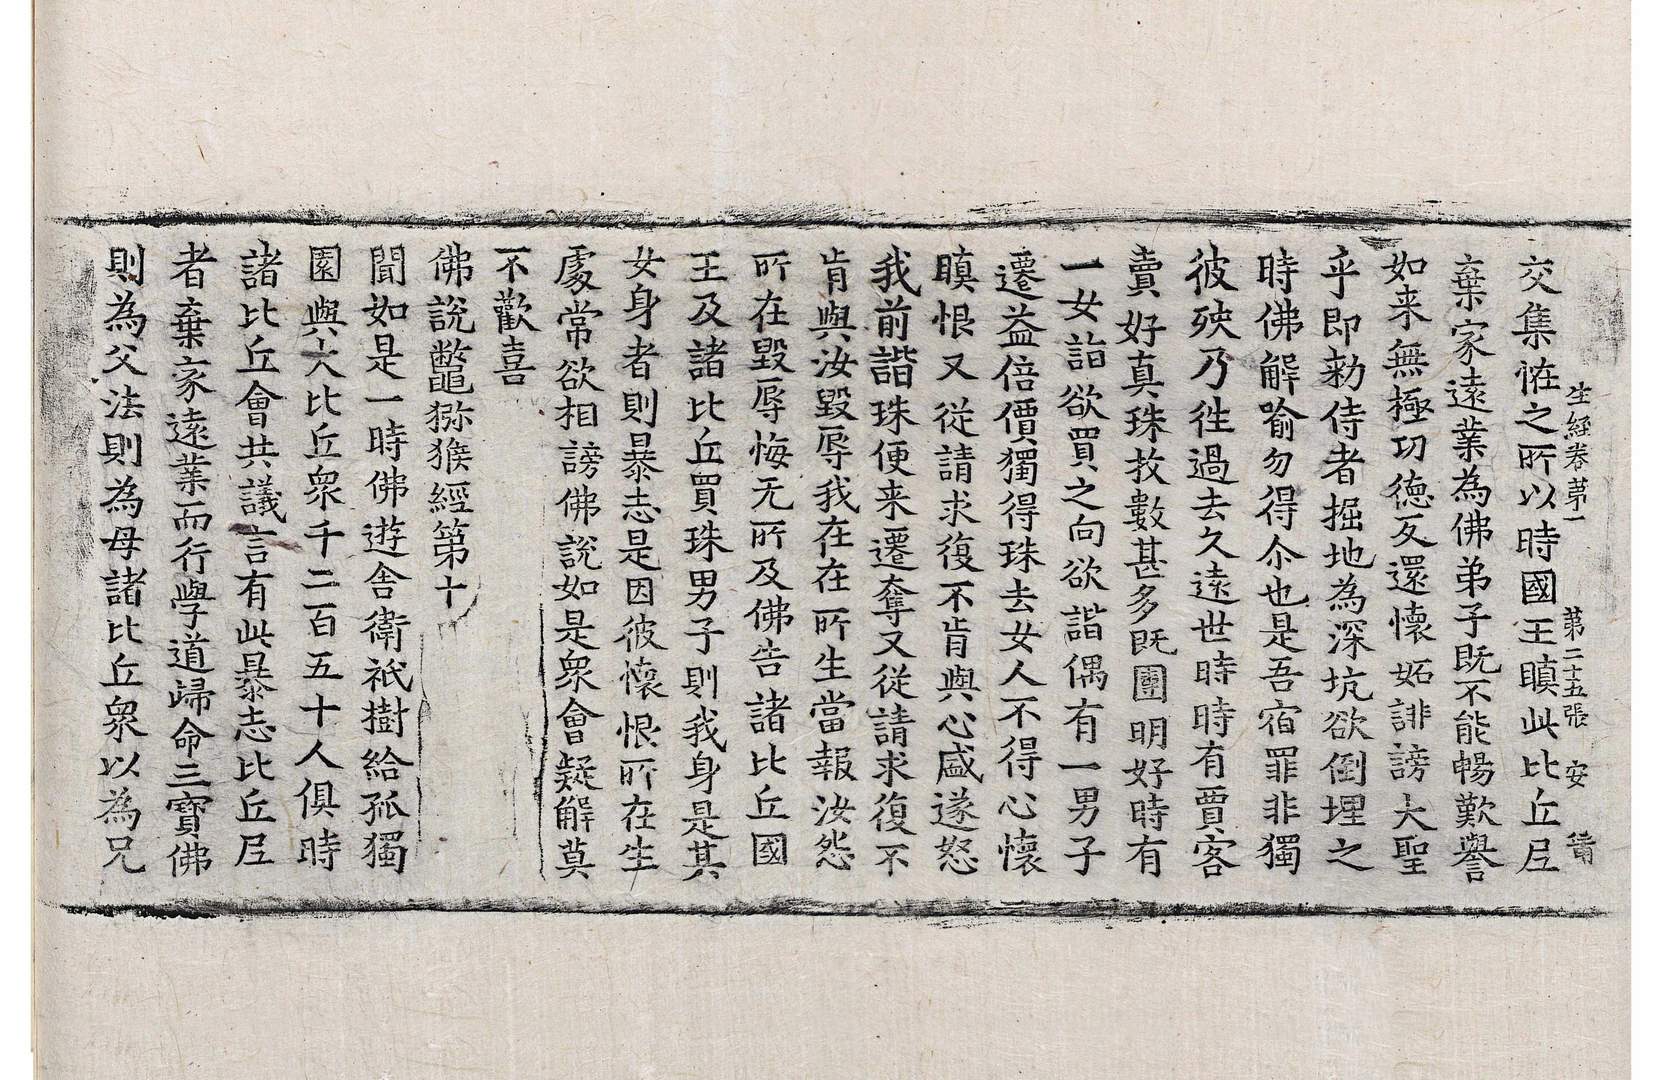 生經卷第一 第二十五張 安
交集恠之所以時國王瞋此比丘尼
棄家遠業為佛弟子既不能暢歎譽
如来無極功徳反還懷妬誹謗大聖
乎即勑侍者掘地為深坑欲倒埋之
時佛解喻勿得尒也是吾宿罪非獨
彼殃乃徃過去久遠世時時有賈客
賣好真珠枚數甚多既團明好時有
一女詣欲買之向欲諧偶有一男子
遷益倍價獨得珠去女人不得心懷
瞋恨又從請求復不肯與心盛遂怒
我前諧珠便来遷奪又從請求復不
肯與汝毀辱我在在所生當報汝怨
所在毀辱悔无所及佛告諸比丘國
王及諸比丘買珠男子則我身是其
女身者則暴志是因彼懷恨所在生
處常欲相謗佛說如是衆會疑解莫
不歡喜
佛說鼈獼猴經第十
聞如是一時佛遊舍衛祇樹給孤獨
園與大比丘衆千二百五十人俱時
諸比丘會共議言有此暴志比丘尼
者棄家遠業而行學道歸命三寶佛
則為父法則為母諸比丘衆以為兄